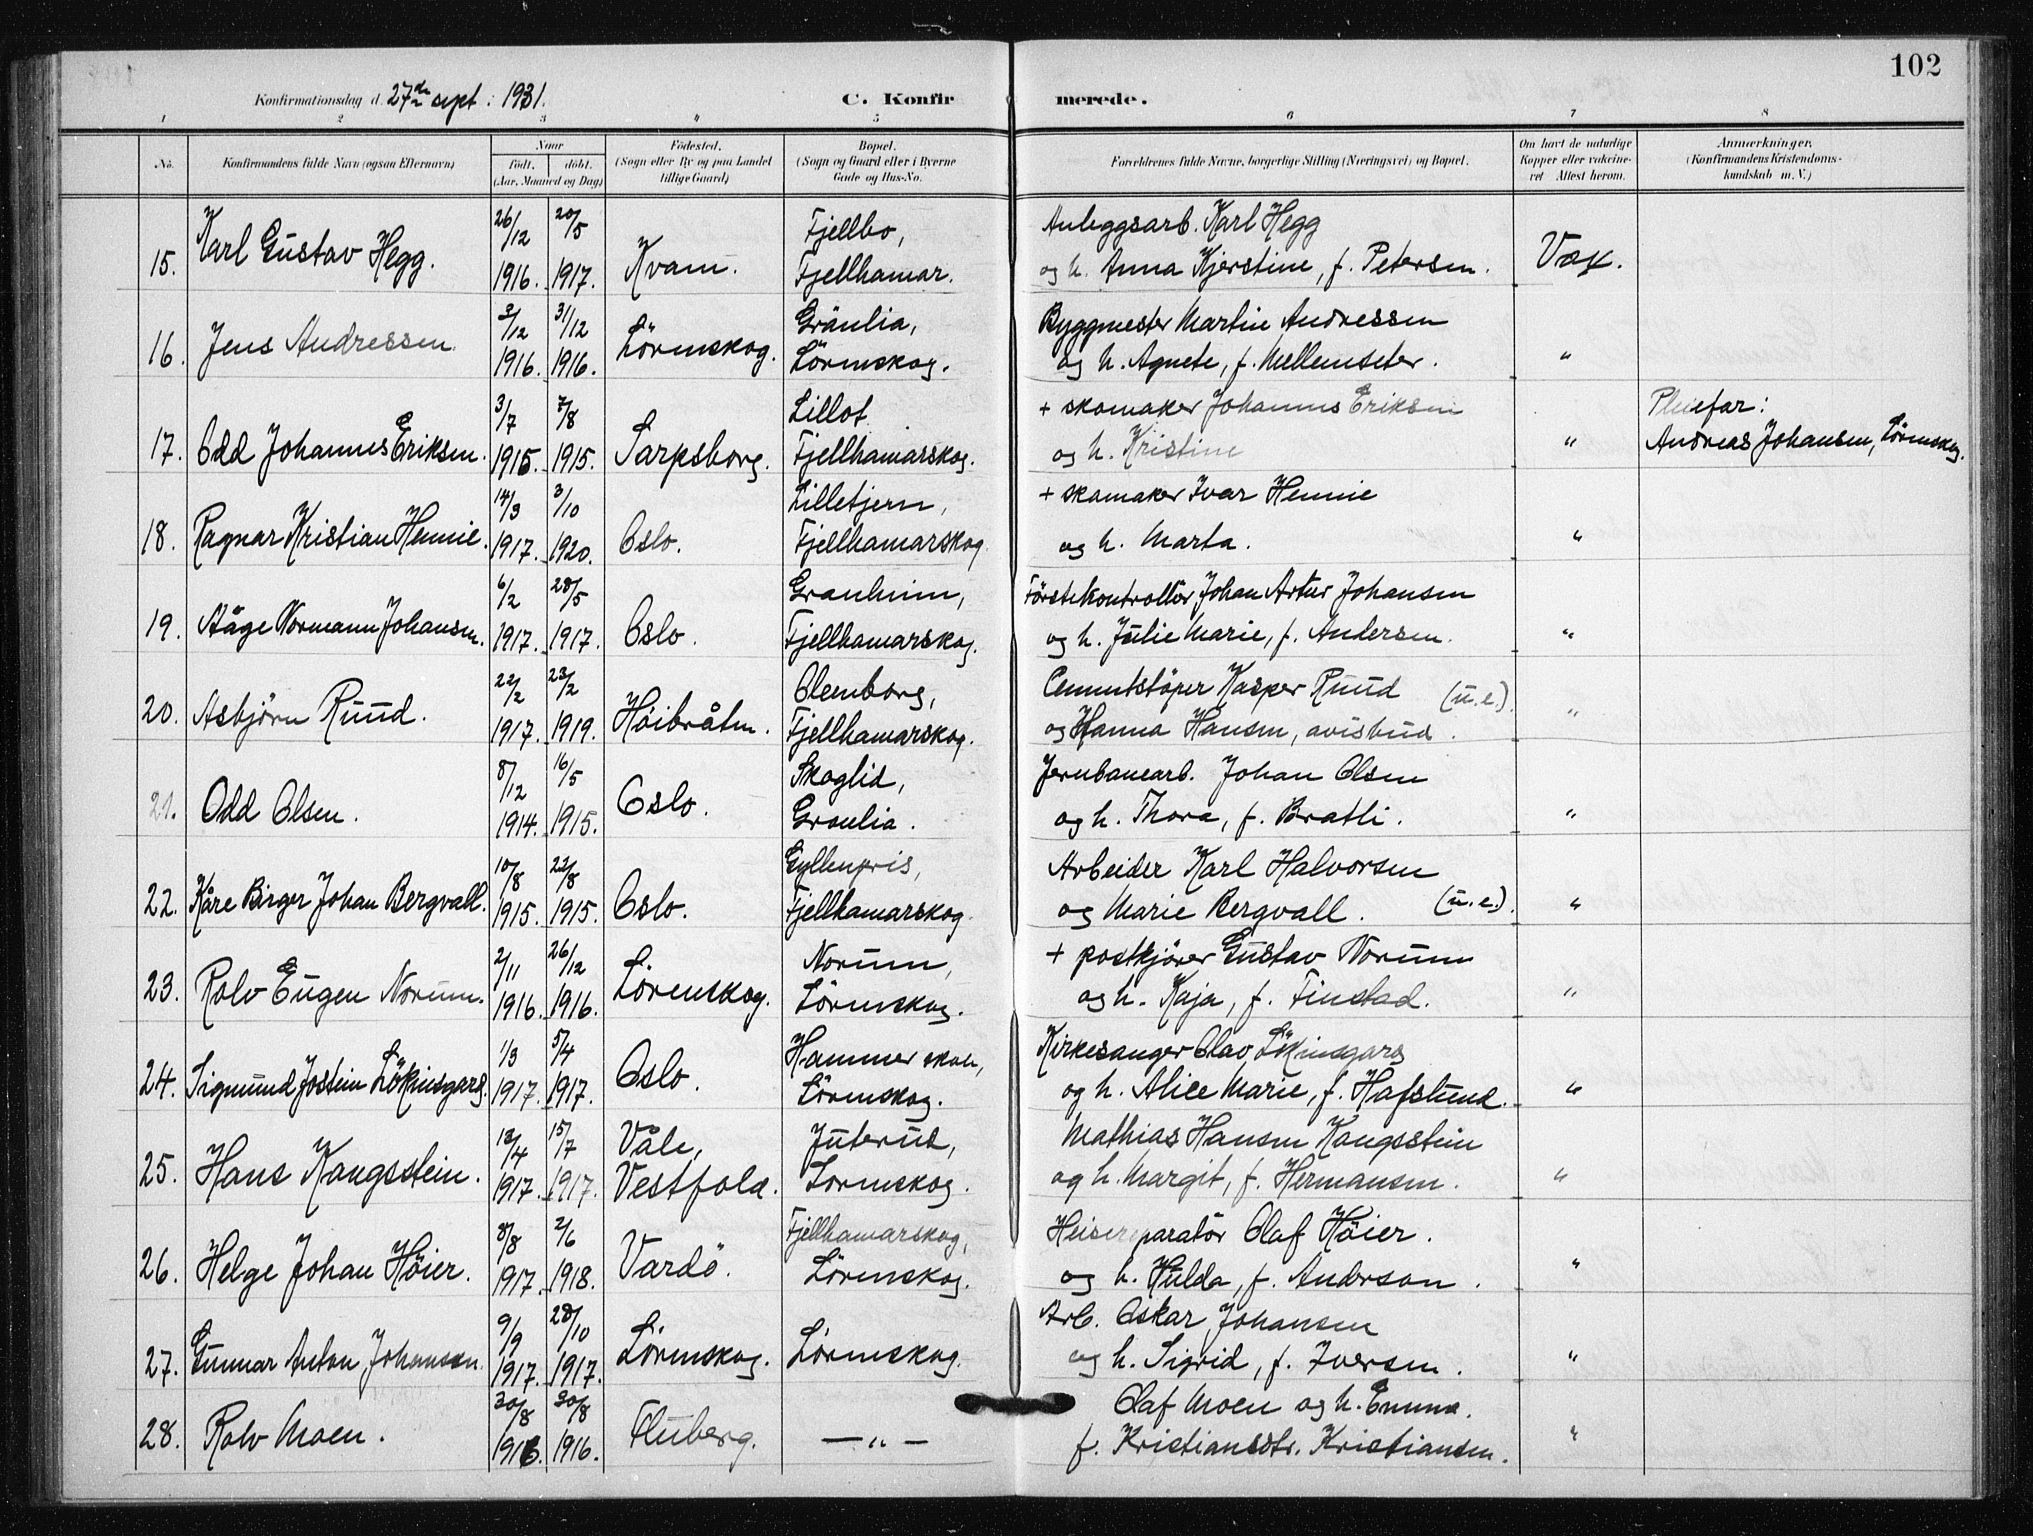 102
Konfirmationsdag d. 27de sept. 1931. C. Konfirmerede.
1 2 3 4 5 6 7 8
No. Konfirmandens fulde Navn (ogsaa Efternavn) Naar født. døbt. (Aar, Maaned og Dag) Fødested. (Sogn eller By og paa Landet tillige Gaard) Bopæl. (Sogn og Gaard eller i Byerne Gade og Hus-No. Forældrenes fulde Navne, borgerlige Stilling (Næringsvei) og Bopæl. Om havt de naturlige Kopper eller vakcineret Attest herom. Anmærkninger. (Konfirmandens Kristendomskundskab m. V.)
26/12 20/5 Fjellbo, Anleggsarb. Karl Hegg
15. Karl Gustav Hegg. 1916. 1917. Kvam. Fjellhamar. og h. Anna Kjerstine, f. Petersen. Vax.
2/12 31/12 Grånlia, Byggmester Martin Andressen
16. Jens Andressen. 1916. 1916. Lörenskog. Lörenskog. og h. Agnete, f. Mellemseter. "
3/7 7/8 Lillot + skomaker Johannes Eriksen Pleiefar:
17. Odd Johannes Eriksen. 1915. 1915. Sarpsborg. Fjellhamarskog. og h. Kristine " Andreas Johansen, Lörenskog.
14/3 3/10 Lilletjern, + skomaker Ivar Hennie
18. Ragnar Kristian Hennie. 1917. 1920. Oslo. Fjellhamarskog. og h. Marta. "
6/2 28/5 Granheim, Förstekontrollör Johan Artur Johansen
19. Aåge Normann Johansen. 1917. 1917. Oslo. Fjellhamarskog. og h. Julie Marie, f. Andersen. "
22/2 23/2 Olemborg, Cementstöper Kasper Ruud (u.e.).
20. Asbjörn Ruud. 1917. 1919. Höibråten. Fjellhamarskog. og Hanna Hansen, avisbud. "
8/12 16/5 Skoglid, Jernbanearb. Johan Olsen
21. Odd Olsen. 1914. 1915. Oslo. Granlia. og h. Thora, f. Bratli. "
10/8 22/8 Gyllenpris, Arbeider Karl Halvorsen
22. Kåre Birger Johan Bergvall. 1915. 1915. Oslo. Fjellhamarskog. og Marie Bergvall. (u.e.). "
2/11 26/12 Norum, + postkjörer Gustav Norum
23. Rolv Eugen Norum. 1916. 1916. Lörenskog. Lörenskog. og h. Kaja, f. Finstad. "
1/3 5/4 Hammer skole, Kirkesanger Olav Lökinsgard
24. Sigmund Jostein Lökinsgard. 1917. 1917. Oslo. Lörenskog. og h. Alice Marie, f. Hafslund. "
13/4 15/7 Våle, Juterud, Mathias Hansen Kongsstein
25. Hans Kongsstein. 1917. 1917. Vestfold. Lörenskog. og h. Margit, f. Hermansen. "
8/8 2/6 Fjellhamarskog, Heisereparatör Olaf Höier.
26. Helge Johan Höier. 1917. 1918. Vardö. Lörenskog. og h. Hulda, f. Anderson. "
9/9 28/10 Arb. Oskar Johansen
27. Gunnar Anton Johansen. 1917. 1917. Lörenskog. Lörenskog. og h. Sigrid, f. Iversen. "
30/8 30/8 Olaf Moen og h. Emma.
28. Rolv Moen. 1916. 1916. Fluberg. — " — f. Kristiansdtr. Kristiansen. "